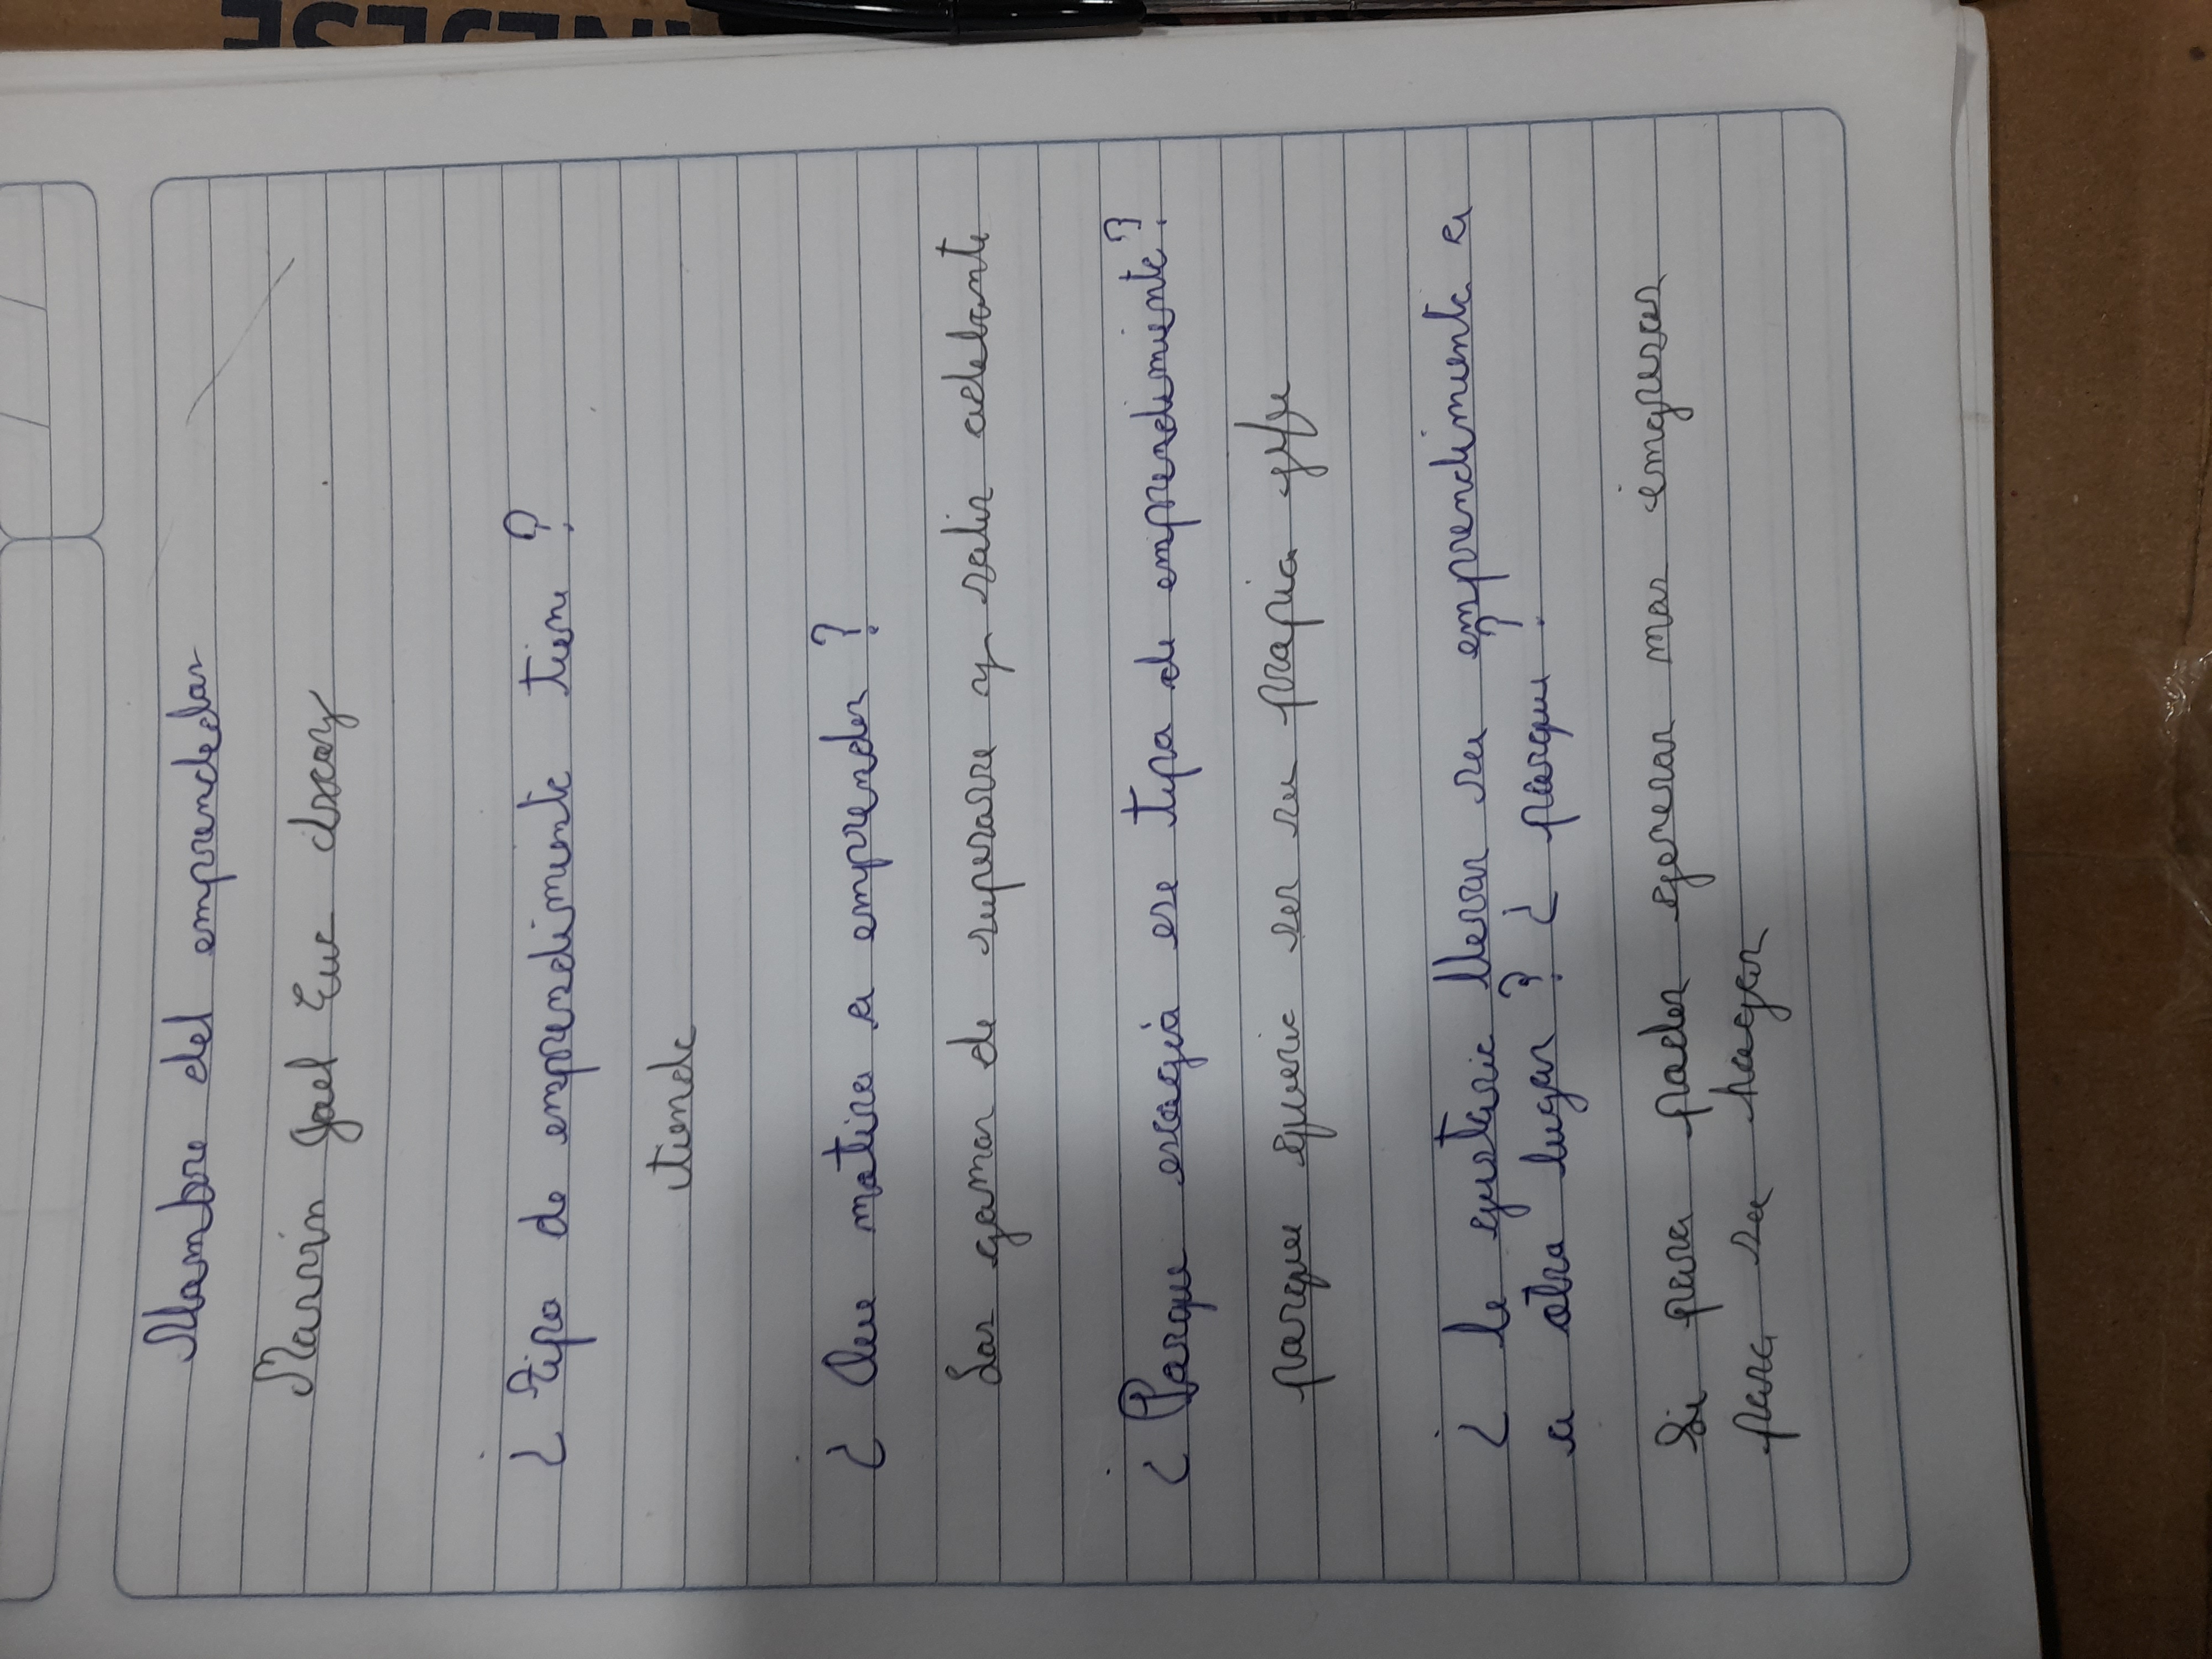 Nombre del emprendedor
Marvin Gael Euc
¿Tipo de emprendimiento tiene?
tienda
¿Que motivo a emprender?
Las ganas de superarse y salir adelante
¿Porque escogió ese tipo de emprendimiento?
porque queria ser su propio jefe
¿Le gustaria llevar su emprendimiento a
a otro lugar? ¿porque?
Si para poder generar mas ingresos
para su hogar
ANEJESE